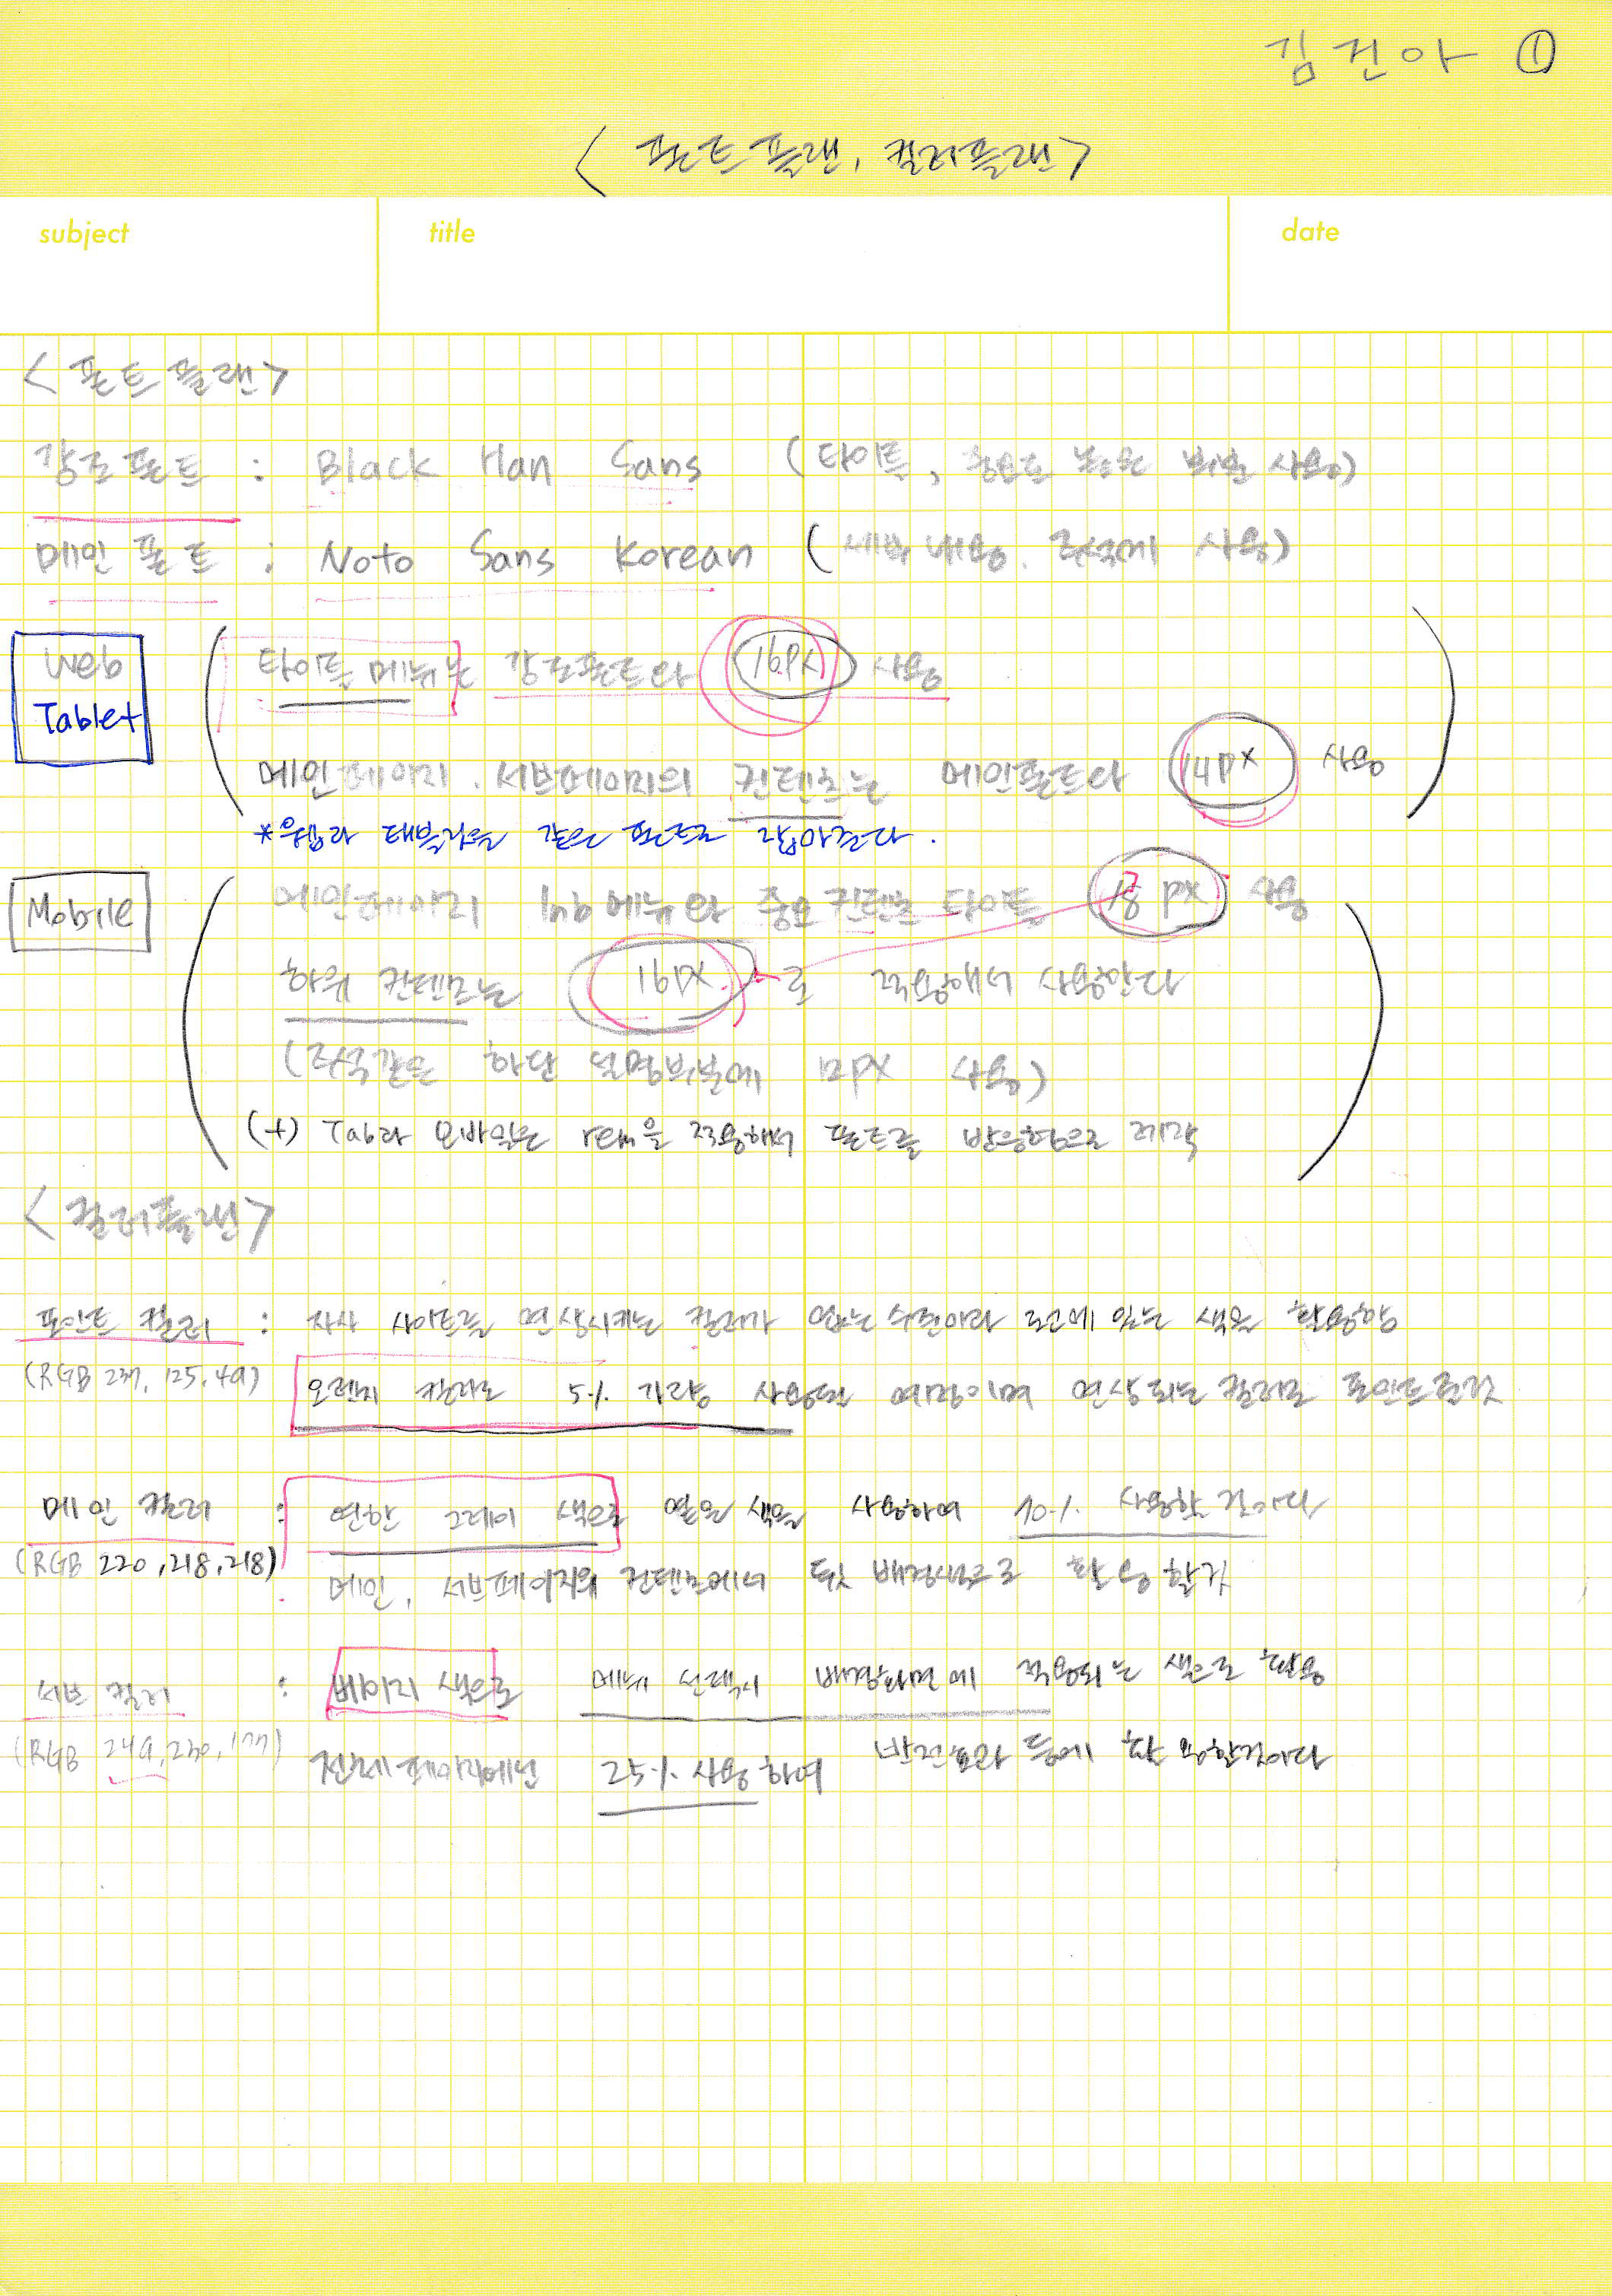 김진아 ①
<폰트플랜, 컬러플랜>
subject title date
<폰트플랜>
강조폰트 : Black Han Sans (타이틀, 중요도 높은 부분 사용)
메인폰트 : Noto Sans Korean (세부내용. 주석에 사용)
Web
Tablet
타이틀 메뉴는 강조폰트와 16px 사용
메인페이지. 서브페이지의 컨텐츠는 메인폰트와 14px 사용
*웹과 태블릿은 같은 폰트로 잡아준다.
Mobile
메인페이지 lnb메뉴와 중요컨텐츠 타이틀 18px 사용
하위 컨텐츠는 16px로 적용해서 사용한다
(주석같은 하단 설명부분에 12px 사용)
(+) Tab과 모바일은 rem을 적용해서 폰트를 반응형으로 제작
<컬러플랜>
포인트 컬러 : 자사 사이트를 연상시키는 컬러가 없는 수준이라 로고에 있는 색을 활용함
(RGB 237, 125, 49)
오렌지 컬러로 5% 가량 사용될 예정이며 연상되는 컬러로 포인트줄것
메인 컬러 : 연한 그레이 색으로 옅은 색을 사용하여 70% 사용할 것이다
(RGB 220, 218, 218)
메인, 서브페이지의 컨텐츠에서 뒷 배경색으로 활용할것
서브 컬러 : 베이지 색으로 메뉴 선택시 배경화면에 적용되는 색으로 활용
(RGB 249, 230, 177)
전체페이지에선 25% 사용하며 반전효과 등에 활용할것이다